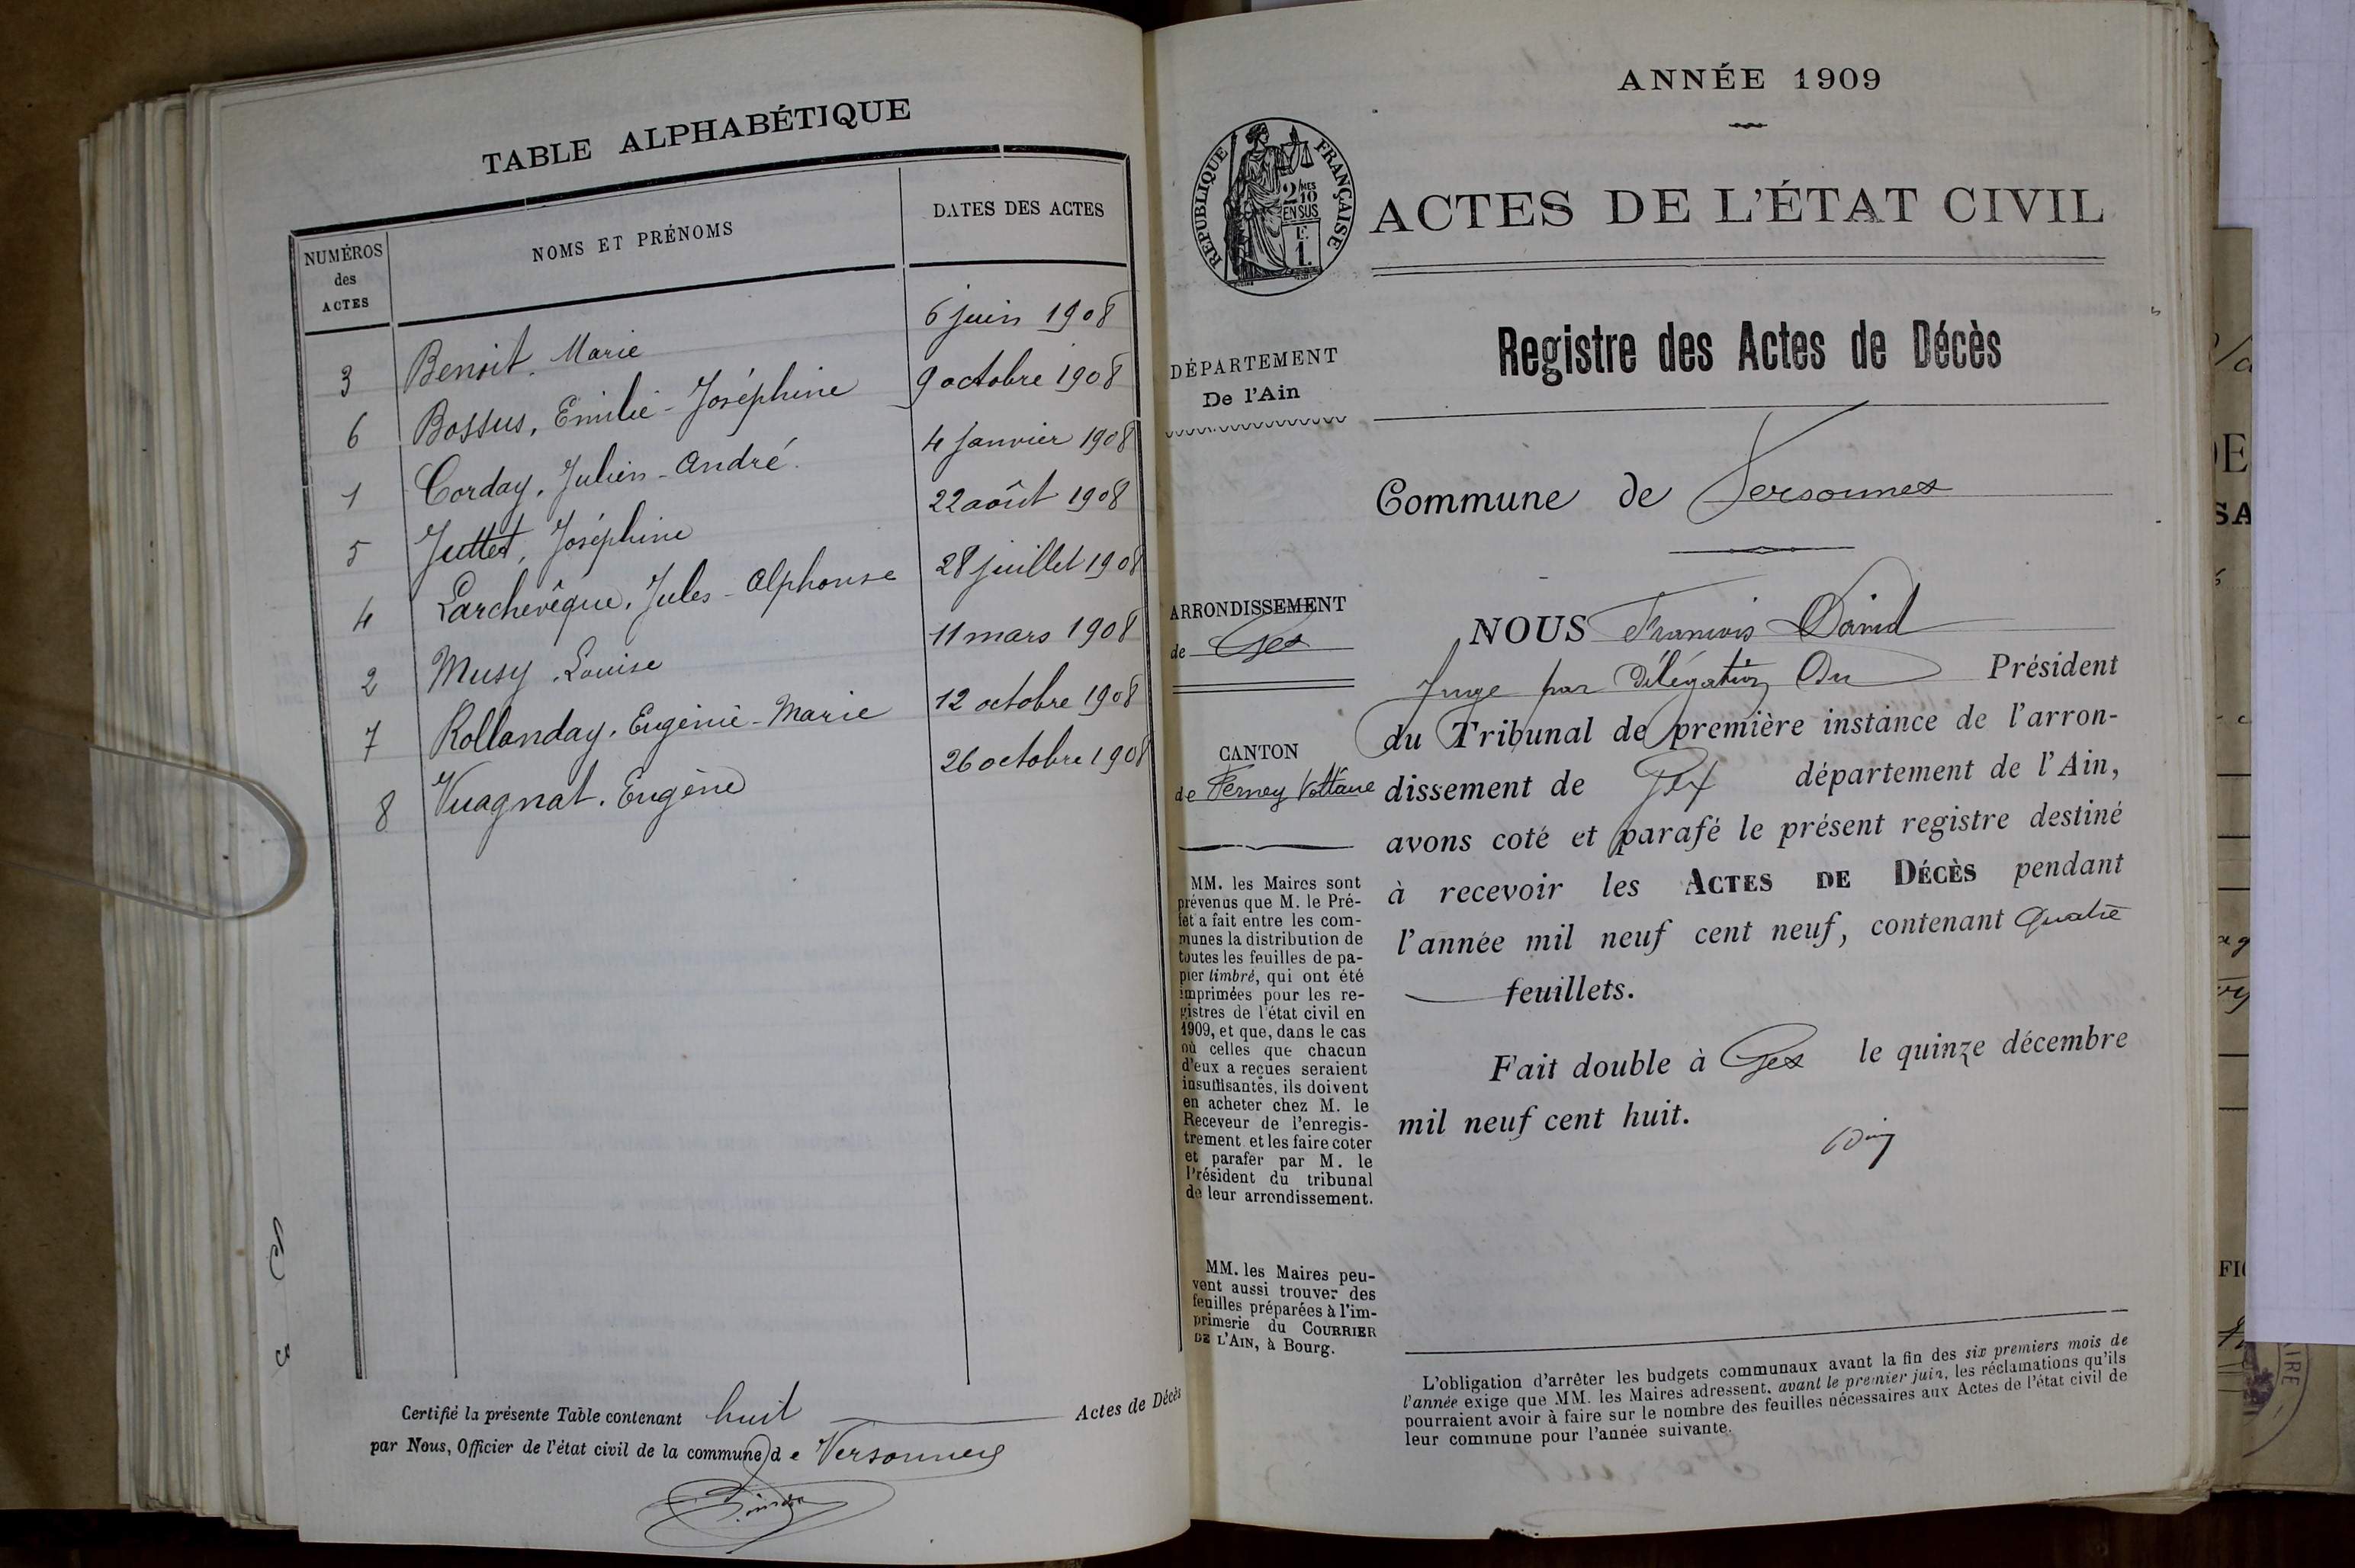 TABLE ALPHABÉTIQUE
NUMÉROS des ACTES
NOMS ET PRÉNOMS
DATES DES ACTES
3 Benoit, Marie 6 juin 1908
6 Bossus, Emilie-Joséphine 9 octobre 1908
1 Corday, Julien-André. 4 janvier 1908
5 Juttet, Joséphine 22 août 1908
4 Larchevêque, Jules-Alphonse 28 juillet 1908
2 Musy, Louise 11 mars 1908
7 Rollanday, Eugénie-Marie 12 octobre 1908
8 Vuagnat, Eugène 26 octobre 1908
Certifié la présente Table contenant huit Actes de Décès
par Nous, Officier de l'état civil de la commune de Versonnex
ANNÉE 1909
RÉPUBLIQUE FRANÇAISE
2/10MES
EN SUS
F.
1.
ACTES DE L'ÉTAT CIVIL
Registre des Actes de Décès
DÉPARTEMENT
De l'Ain
Commune de Versonnex
ARRONDISSEMENT
de Gex
CANTON
de Ferney Voltaire
NOUS François David
Juge par délégation Du Président
du Tribunal de première instance de l'arron-
dissement de Gex département de l'Ain,
avons coté et parafé le présent registre destiné
à recevoir les ACTES DE DÉCÈS pendant
l'année mil neuf cent neuf, contenant quatre
feuillets.
Fait double à Gex le quinze décembre
mil neuf cent huit.
MM. les Maires sont
prévenus que M. le Pré-
fet a fait entre les com-
munes la distribution de
toutes les feuilles de pa-
pier timbré, qui ont été
imprimées pour les re-
gistres de l'état civil en
1909, et que, dans le cas
où celles que chacun
d'eux a reçues seraient
insuffisantes, ils doivent
en acheter chez M. le
Receveur de l'enregis-
trement et les faire coter
et parafer par M. le
Président du tribunal
de leur arrondissement.
MM. les Maires peu-
vent aussi trouver des
feuilles préparées à l'im-
primerie du COURRIER
DE L'AIN, à Bourg.
L'obligation d'arrêter les budgets communaux avant la fin des six premiers mois de
l'année exige que MM. les Maires adressent, avant le premier juin, les réclamations qu'ils
pourraient avoir à faire sur le nombre des feuilles nécessaires aux Actes de l'état civil de
leur commune pour l'année suivante.